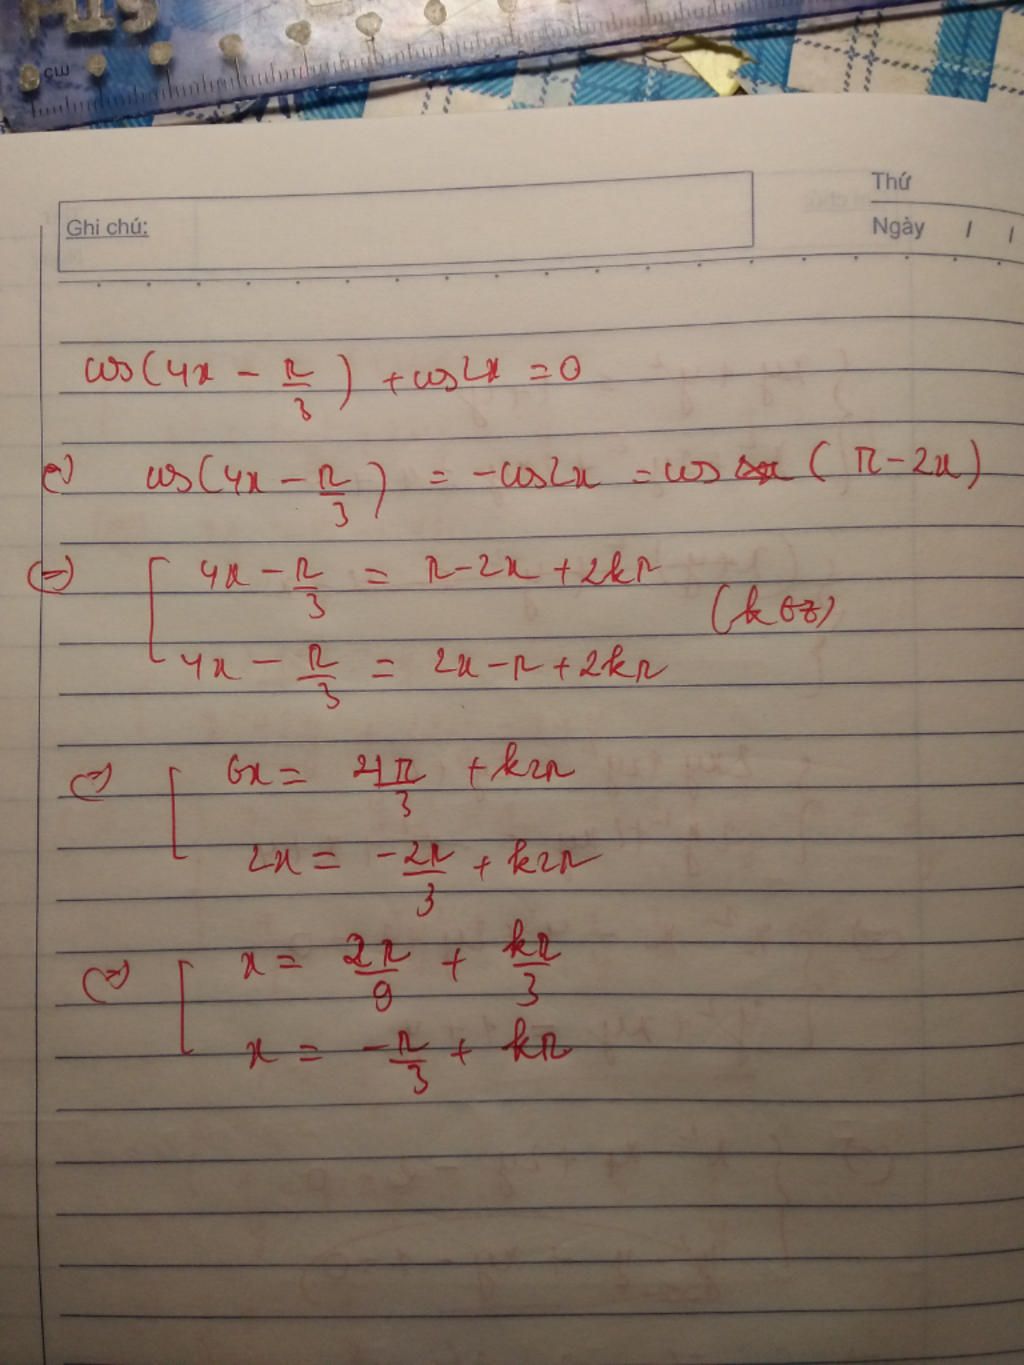 cm
Ghi chú:
Thứ
Ngày / /
cos(4x - π/3) + cos2x = 0
(=) cos(4x - π/3) = -cos2x = cos (π-2x)
(=) [ 4x - π/3 = π-2x+2kπ
(k∈z)
4x - π/3 = 2x-π+2kπ
(=) [ 6x = 4π/3 + k2π
2x = -2π/3 + k2π
(=) [ x = 2π/9 + kπ/3
x = -π/3 + kπ